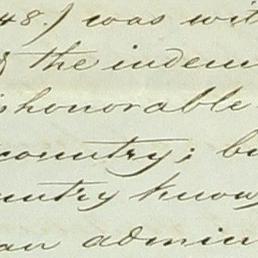 48.) was wit
the indem
ishonorable
country; bu
untry know
an admin